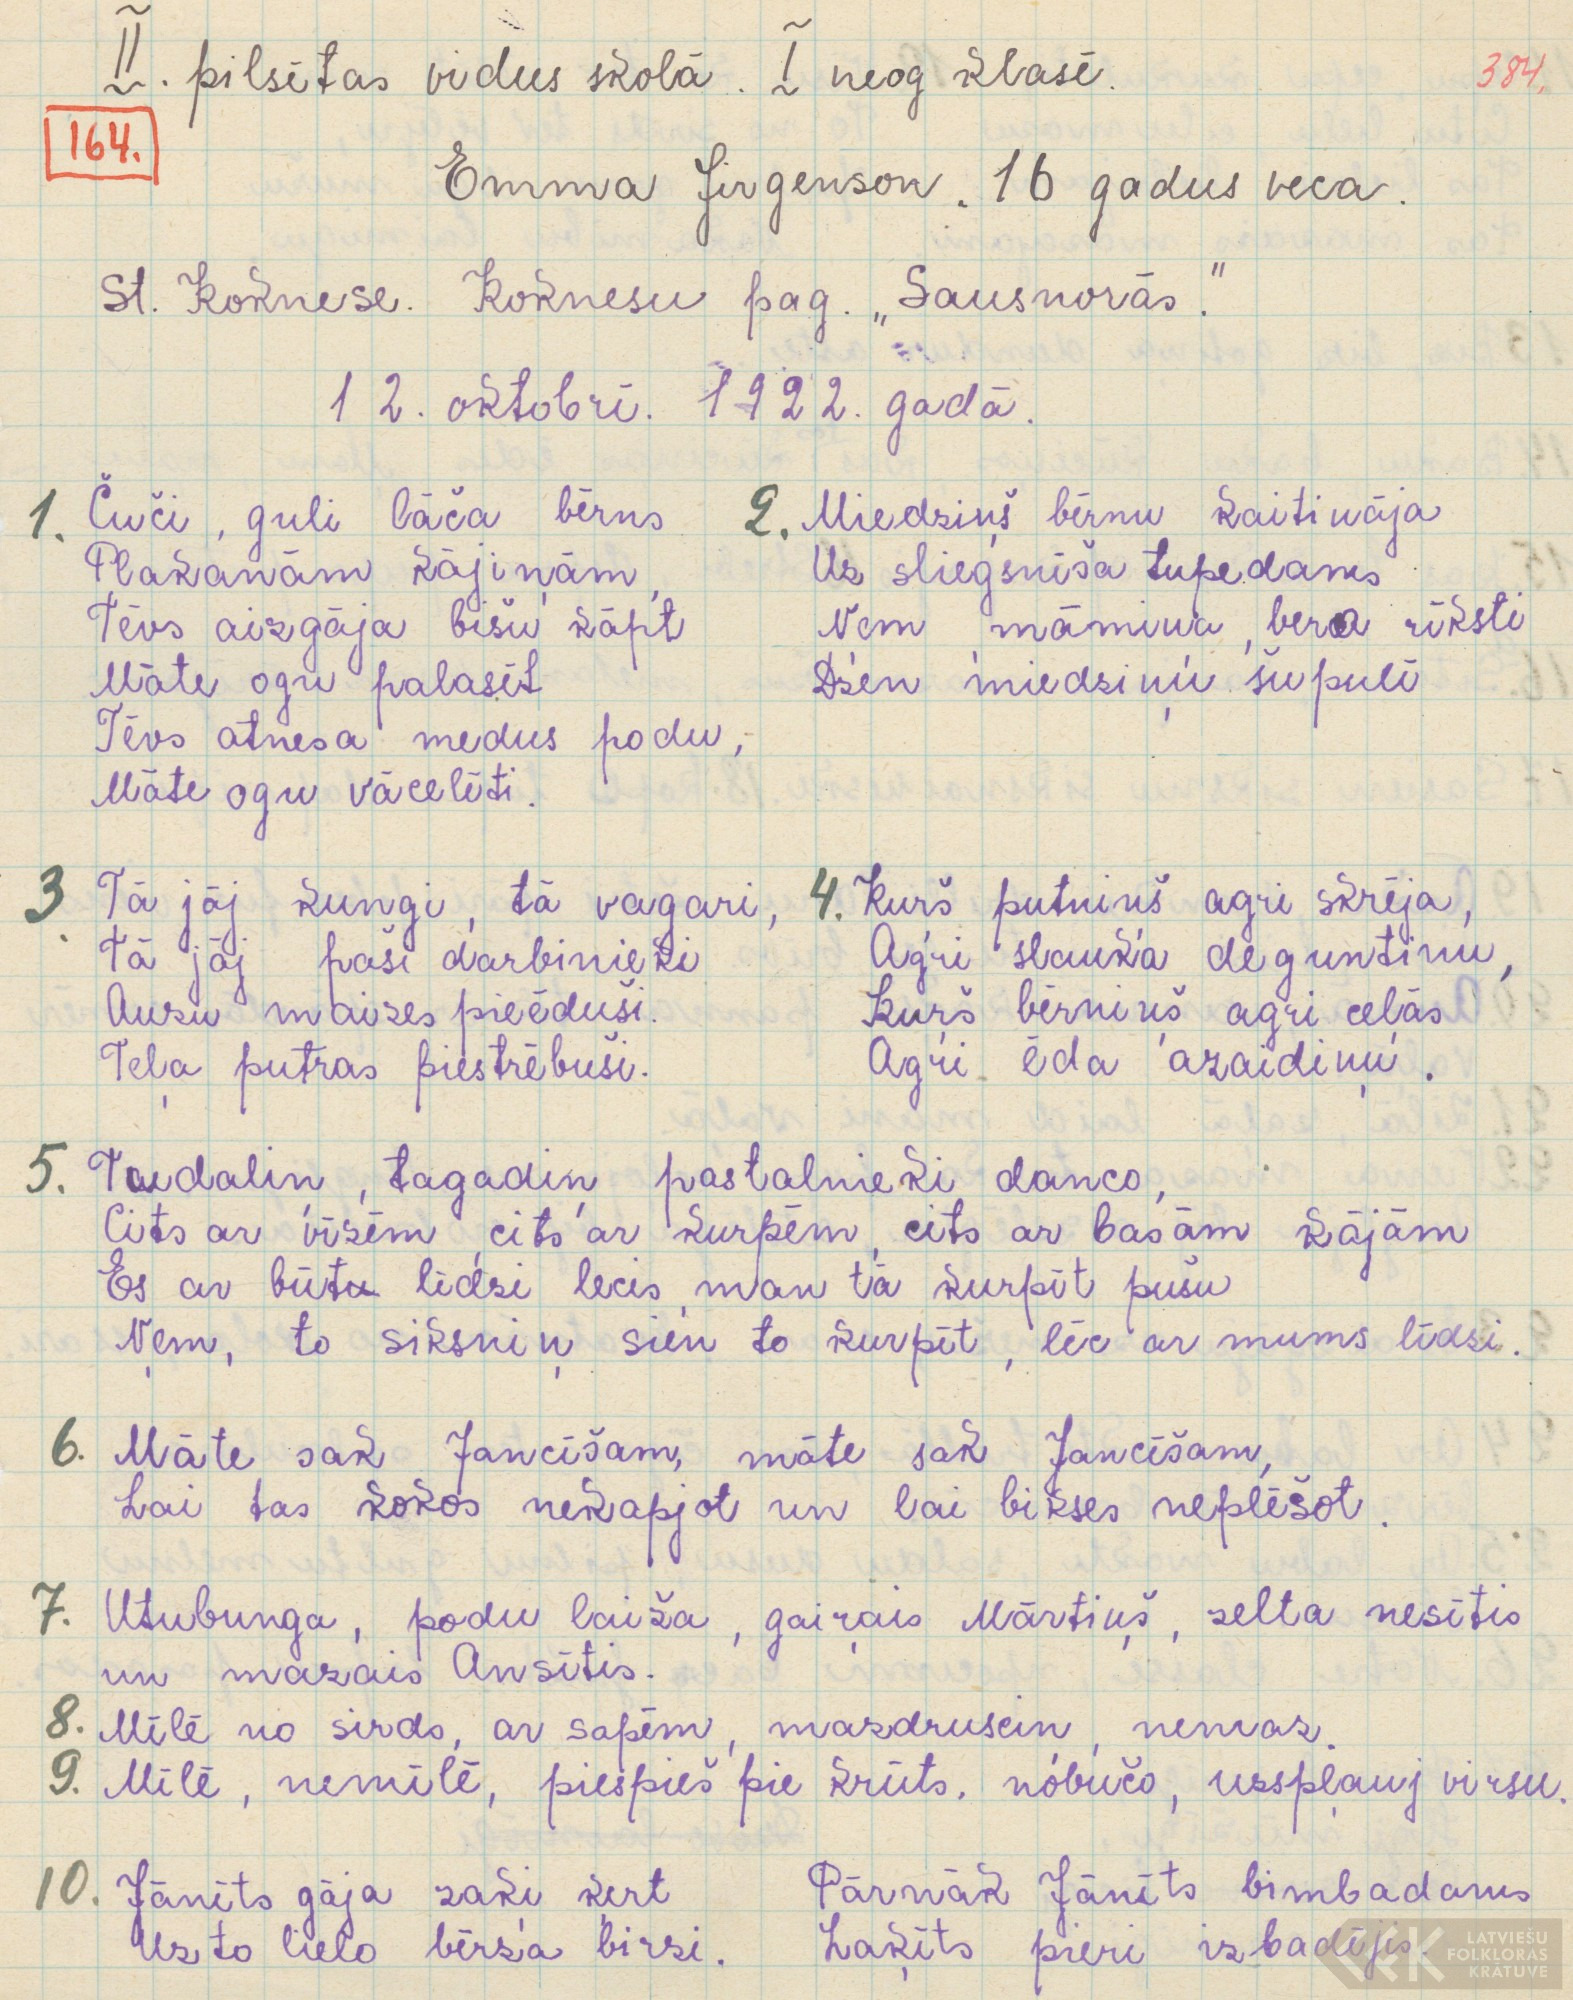 II. pilsētas vidus skolā. I neog klasē.
384.
164.
Emma Jirgenson. 16 gadus veca.
St. Koknese. Koknesu pag. „Sausnorās".
12. oktobrī. 1922. gadā.
1. Čuči, guli lāča bērns
Plakanām kājiņām,
Tēvs aizgāja bišu kāpt
Māte ogu palasīt
Tēvs atnesa medus podu,
Māte ogu vācelīti.
2. Miedziņš bērnu kaitināja
Uz sliegsnīša tupedams
Ņem māmiņa, bera rīksti
Dzen miedziņu šupulī
3. Tā jāj kungi, tā vagari,
Tā jāj paši darbinieki
Auzu maizes pieēduši.
Teļa putras piestrēbuši.
4. Kurš putniņš agri skrēja,
Agri slauka deguntiņu,
Kurš bērniņš agri ceļas
Agri ēda azaidiņu.
5. Tudaliņ, tagadiņ pastalnieki danco,
Cits ar vīzēm, cits ar kurpēm, cits ar basām kājām
Es ar būtu līdzi lecis, man tā kurpīt pušu
Ņem, to siksniņ sien to kurpīt, lēc ar mums līdzi.
6. Māte sak Jancīšam, māte sak Jancīšam,
Lai tas kokos nekapjot un lai bikses neplēšot.
7. Utubunga, podu laiža, gaiŗais Mārtiņš, zelta nesītis
un mazais Ansītis.
8. Mīlē no sirds, ar sapēm, mazdrusciņ, nemaz.
9. Mīlē, nemīlē, piespieš pie krūts, nobučo, uzspļauj virsu.
10. Jānīts gāja zaķi ķert
Uz to lielo bērza birzi.
Pārnāk Jānīts bimbadams
Zaķīts pieri izbadījis.
LATVIEŠU
FOLKLORAS
KRĀTUVE